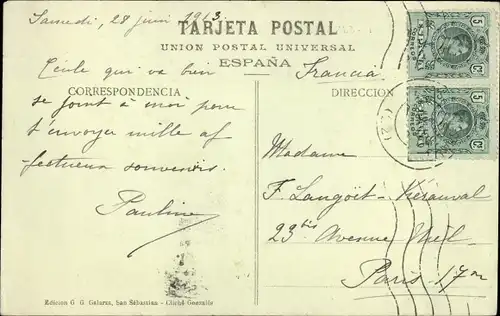 Samedi, 28 juin 1913
TARJETA POSTAL
UNION POSTAL UNIVERSAL
ESPAÑA
CORRESPONDENCIA
DIRECCION
Cécile qui va bien
se joint à moi pour
t'envoyer mille af
fectueux souvenirs.
Pauline
Francia
Madame
F. Langoët-Kérauval
23bis Avenue Niel
Paris 17me
5 CS
5 CS
Edicion G. G. Galarza, San Sebastian - Cliché Gonzalo